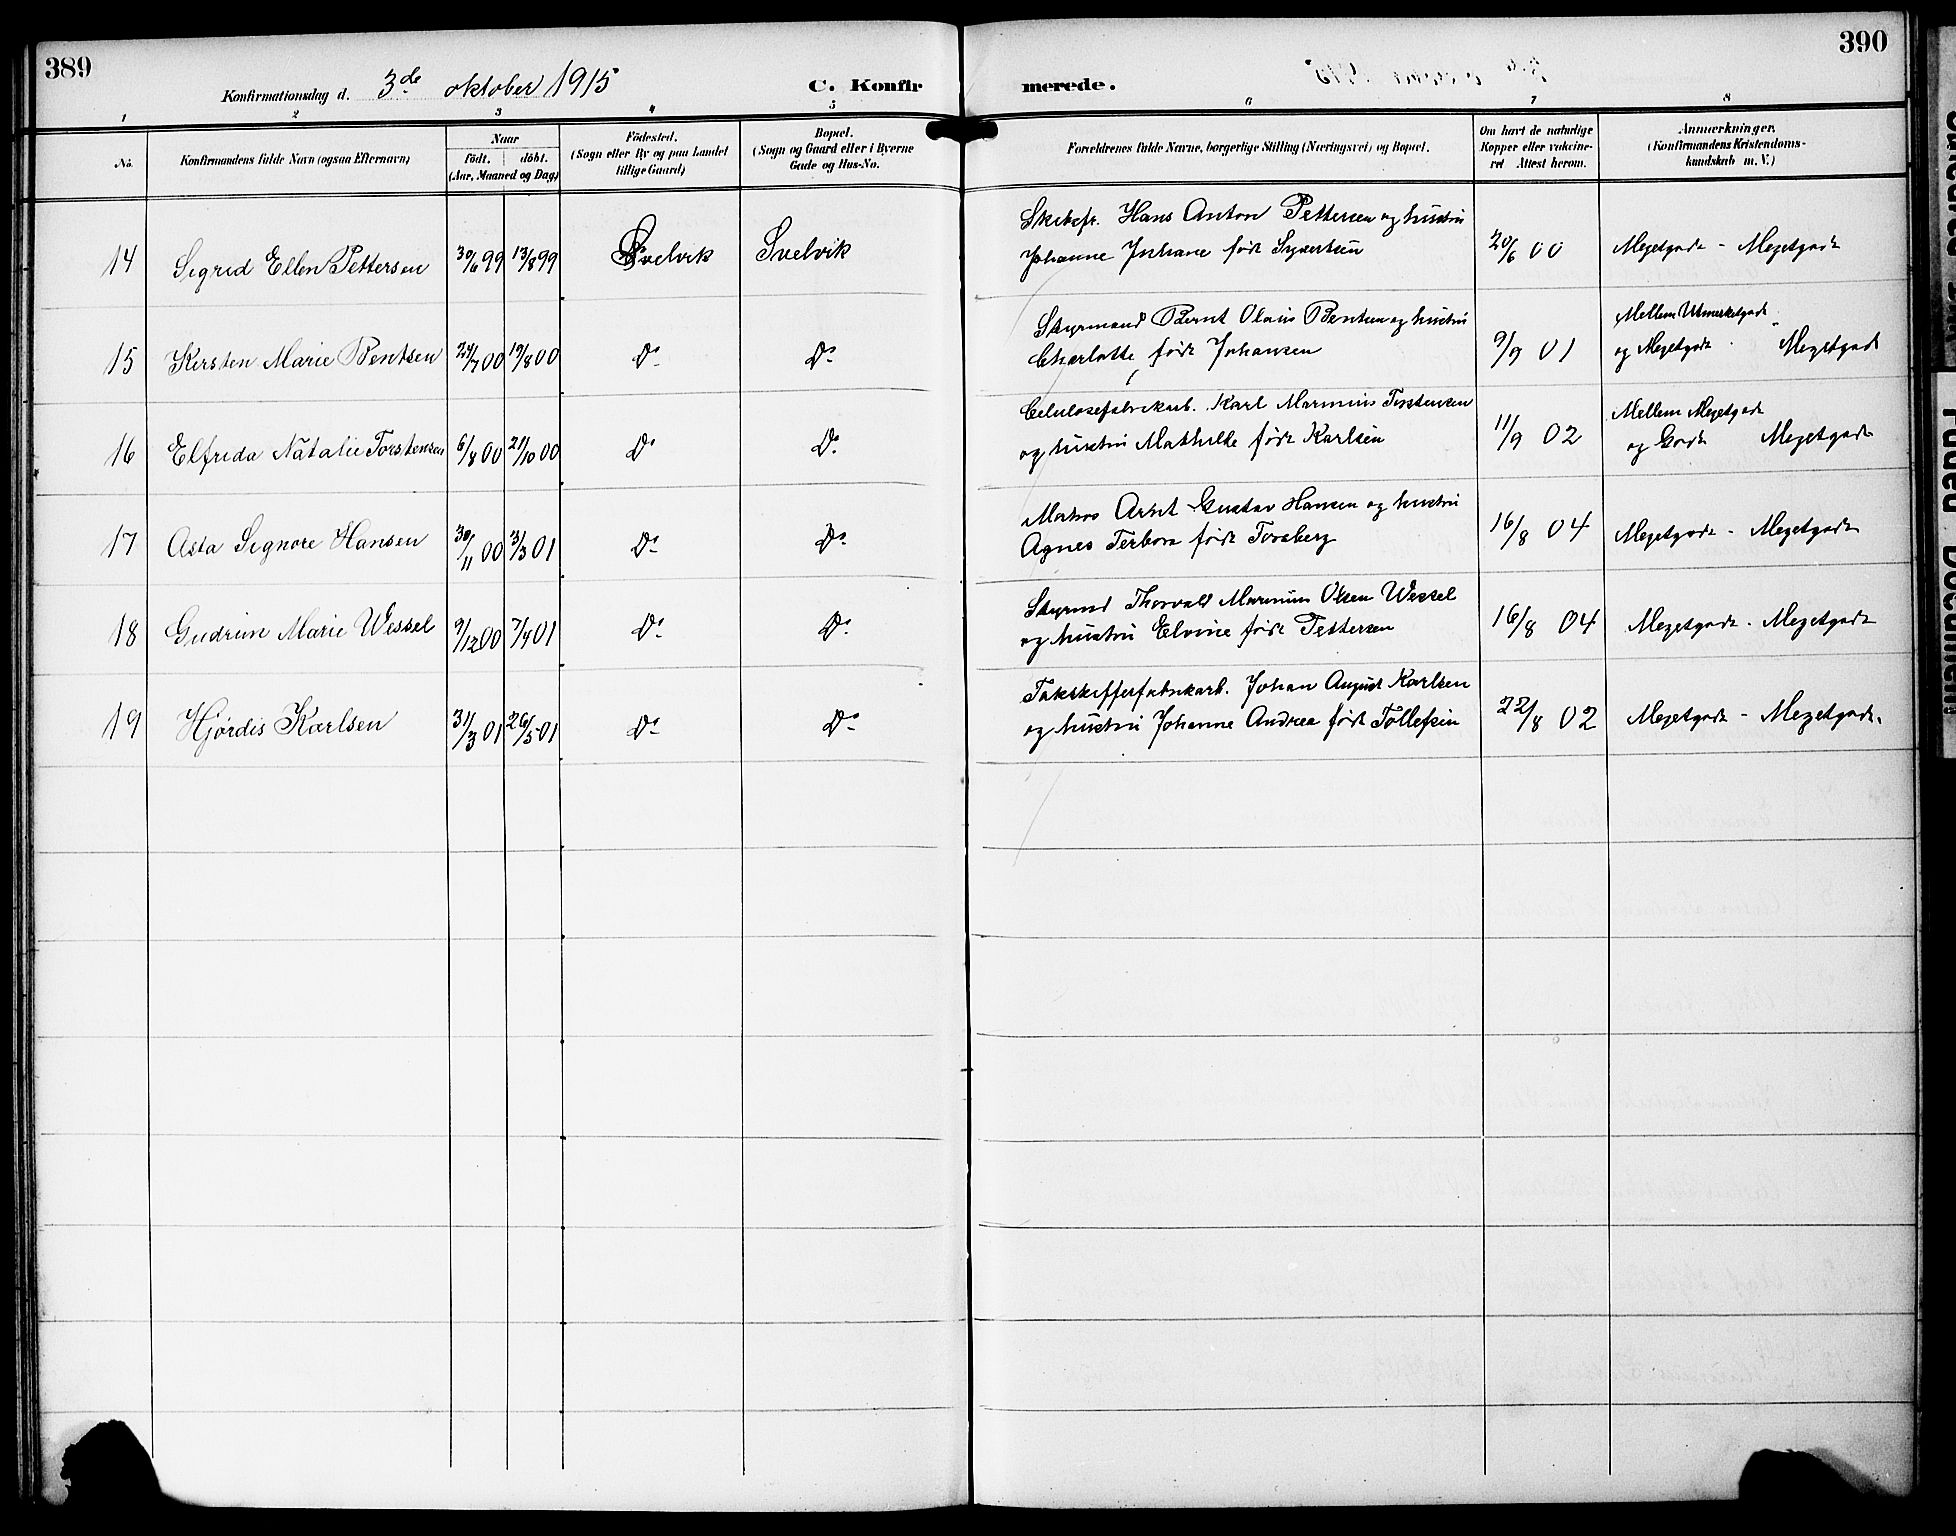 389
390
Konfirmationsdag d. 3de oktober 1915
C. Konfirmerede.
1 2 3 4 5 6 7 8
No. Konfirmandens fulde Navn (ogsaa Efternavn) Naar født. døbt. (Aar, Maaned og Dag) Fødested. (Sogn eller By og paa Landet tillige Gaard) Bopæl. (Sogn og Gaard eller i Byerne Gade og Hus-No. Forældrenes fulde Navne, borgerlige Stilling (Næringsvei) og Bopæl. Om havt de naturlige Kopper eller vaccineret Attest herom. Anmærkninger. (Konfirmandens Kristendomskundskab m. V.)
14 Sigrid Ellen Pettersen 30/6 99 13/8 99 Svelvik Svelvik Skibsfr. Hans Anton Pettersen og hustru
Johanne Juliane født Syvertsen 20/6 00 Megetgodt - Megetgodt
15 Kirsten Marie Bentsen 24/7 00 19/8 00 Do Do Styrmand Bernt Olaus Bentsen og hustru
Charlotte født Johansen 9/9 01 Mellem Utmerketgodt
og Megetgodt - Megetgodt
16 Elfrida Natalie Torstensen 6/8 00 21/10 00 Do Do Celulosefabrikarb. Karl Marinius Torstensen
og hustru Mathilde født Karlsen 11/9 02 Mellem Megetgodt
og Godt Megetgodt
17 Asta Signore Hansen 30/11 00 23/3 01 Do Do Matros Arnt Gustav Hansen og hustru
Agnes født Forsberg 16/8 04 Megetgodt - Megetgodt
18 Gudrun Marie Wessel 9/12 00 7/4 01 Do Do Styrmd Thorvald Marinius Olsen Wessel
og hustru Elvine født Pettersen 16/8 04 Megetgodt - Megetgodt
19 Hjørdis Karlsen 31/3 01 26/5 01 Do Do Takskifferfabrikarb. Johan August Karlsen
og hustru Johanne Andrea født Tollefsen 22/8 02 Megetgodt - Megetgodt.